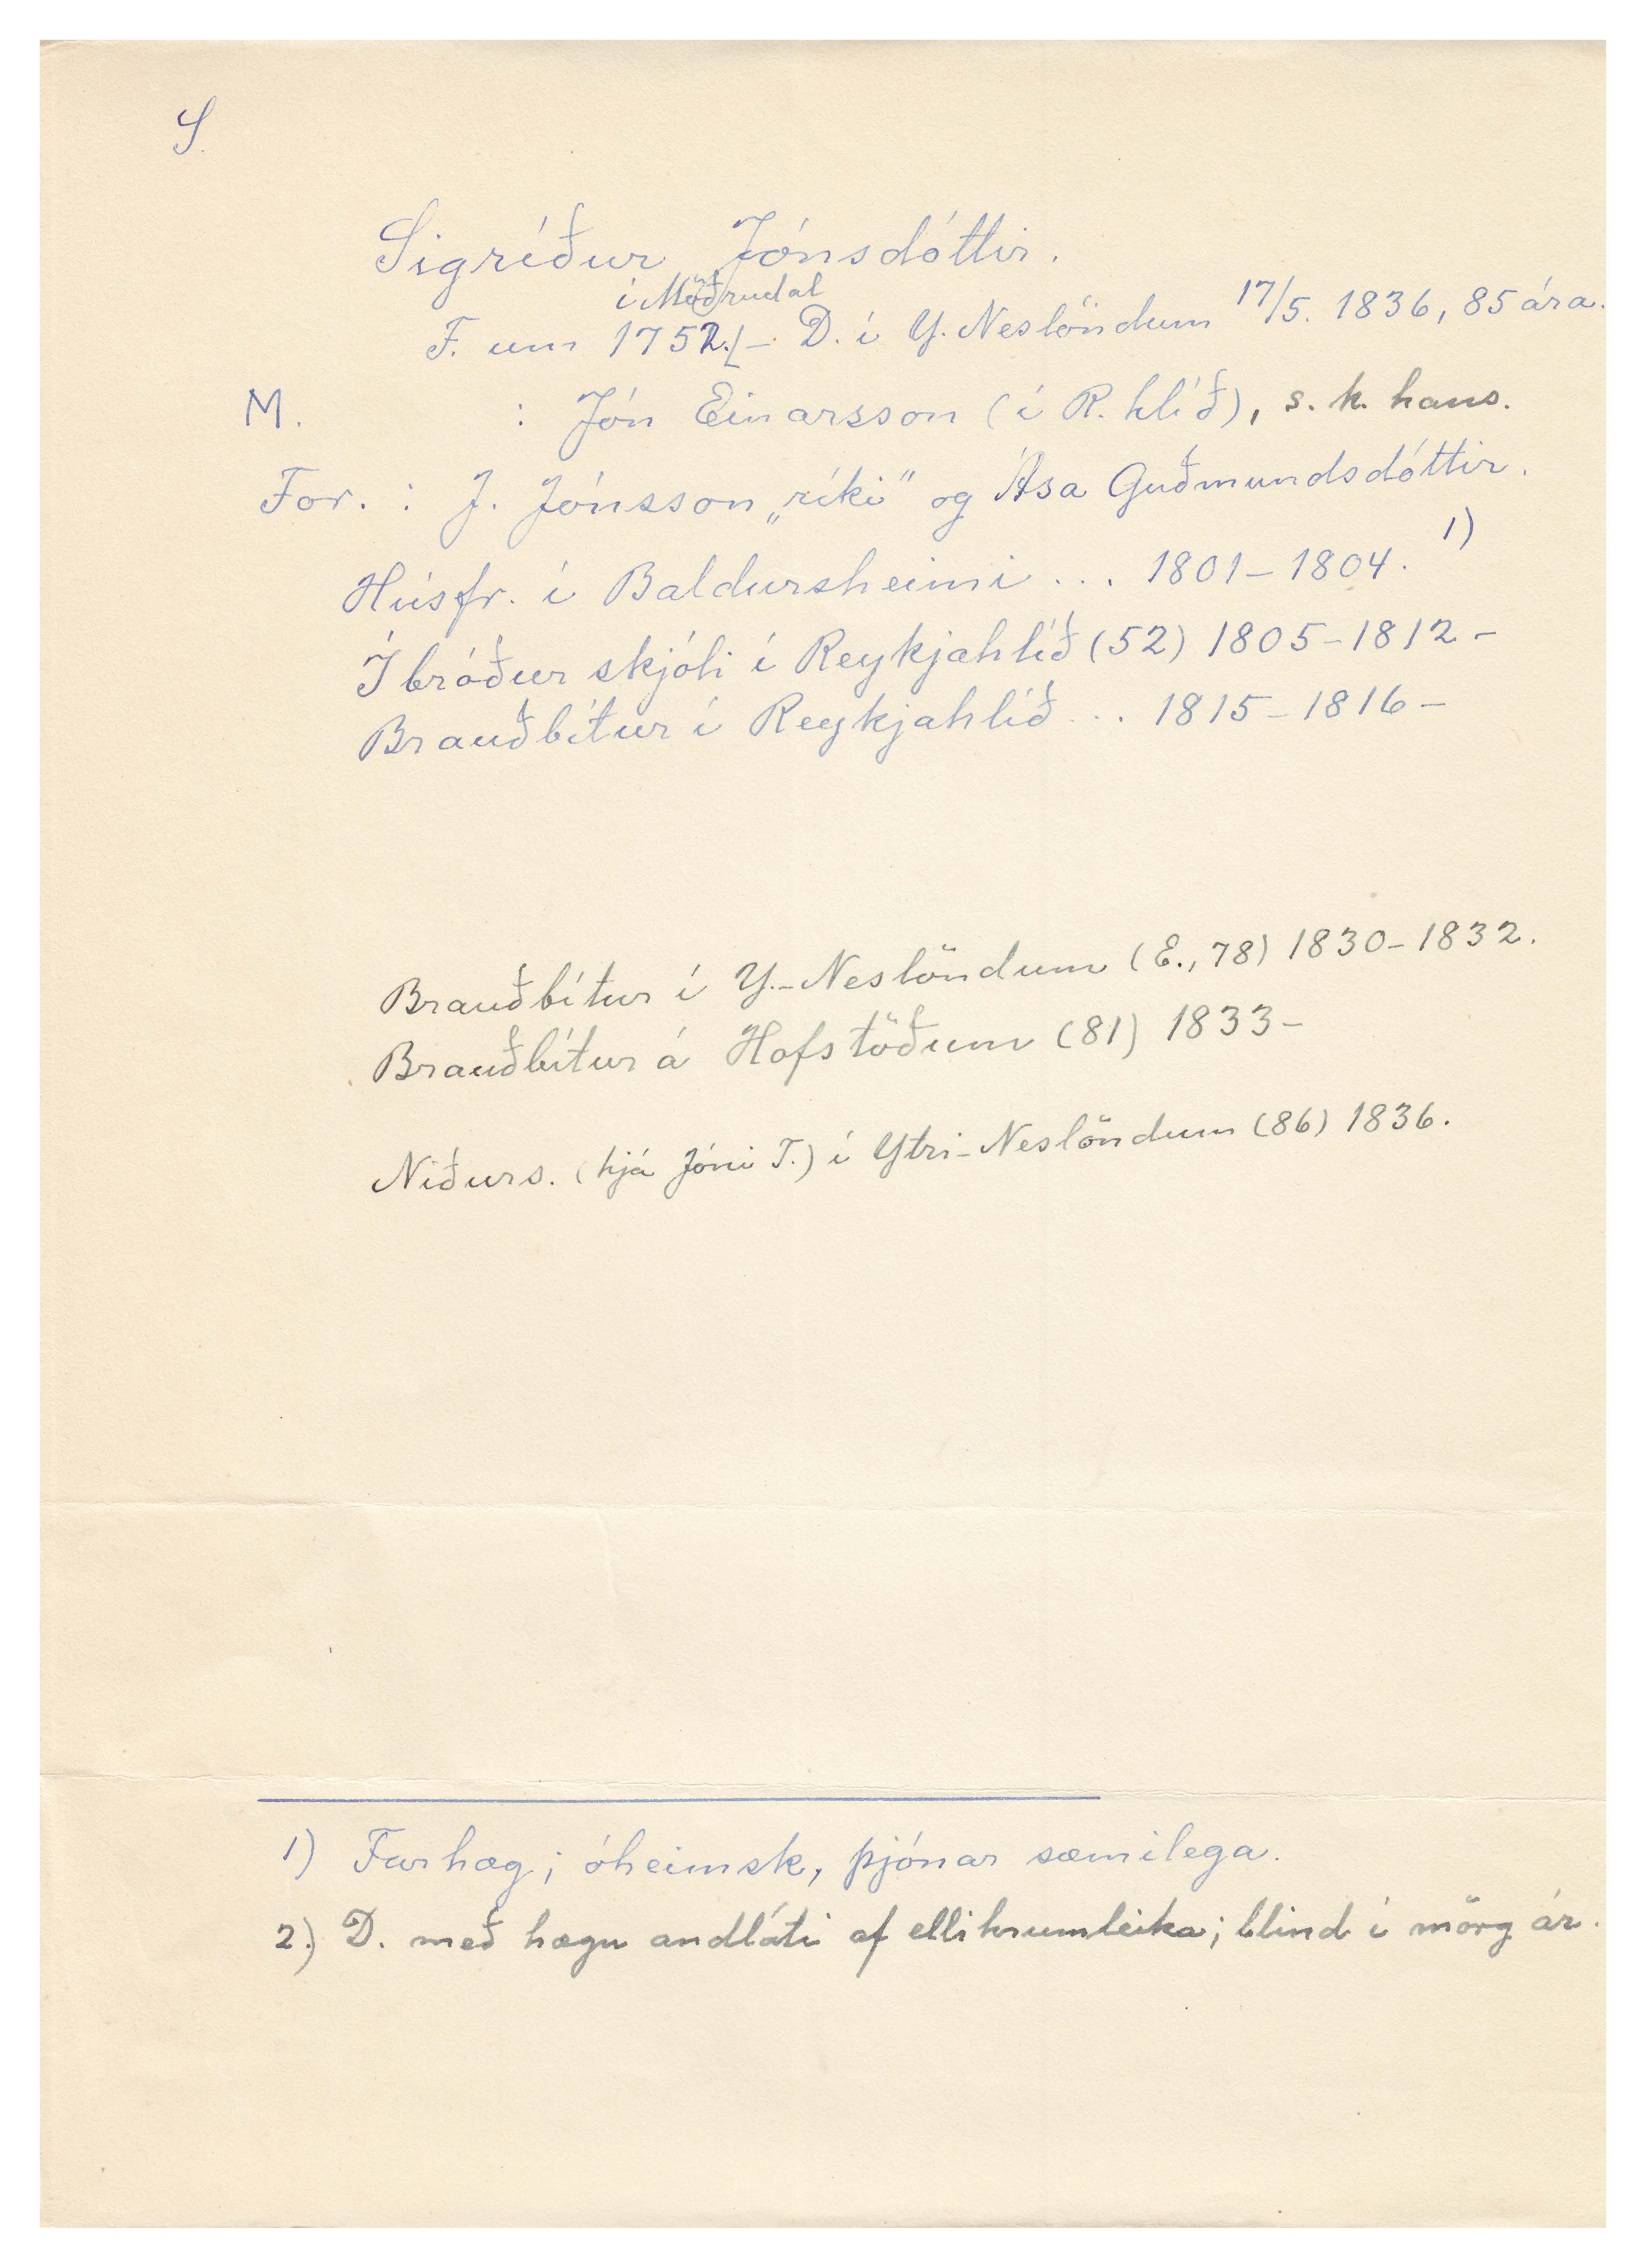 S.
Sigríður Jónsdóttir.
í Möðrudal
F. um 1752. – D. í Y. Neslöndum 17/5. 1836, 85 ára.
M. : Jón Einarsson (í R. hlíð), s. k. hans.
For. : J. Jónsson „ríki“ og Ása Guðmundsdóttir.
Húsfr. í Baldursheimi ... 1801–1804. 1)
Í bróður skjóli í Reykjahlíð (52) 1805–1812 –
Brauðbítur í Reykjahlíð ... 1815–1816 –
Brauðbítur í Y.-Neslöndum (E., 78) 1830–1832.
Brauðbítur á Hofstöðum (81) 1833–
Niðurs. (hjá Jóni T.) í Ytri-Neslöndum (86) 1836.
1) Forhæg; óheimsk, þjónar sæmilega.
2.) D. með hægu andláti af ellihrumleika; blind í mörg ár.